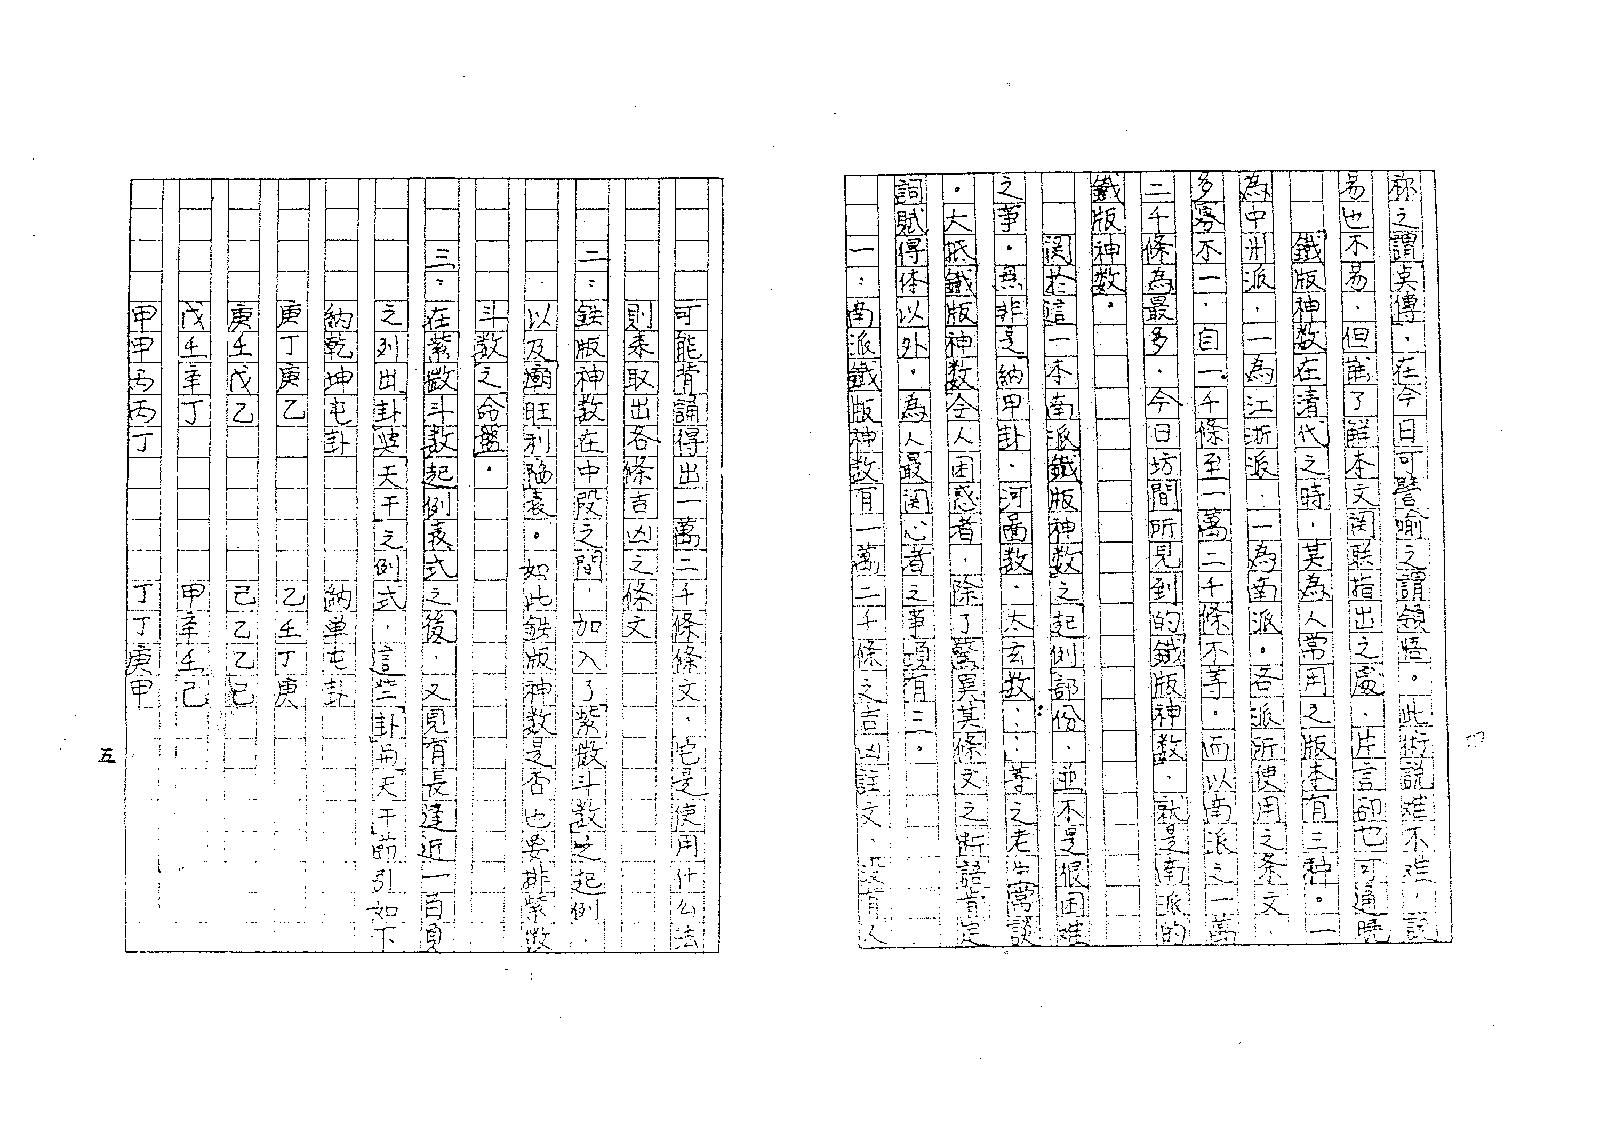 称之謂真傳．在今日可譬喻之謂領悟。此術説难不难．説
易也不易．但能了解本文関联指出之處．片言卻也可通曉
鐵版神数在清代之時．其為人常用之版本有三种。一
為中州派．一為江浙派．一為南派。各派所使用之条文．
多寡不一．自一千條至一萬二千條不等。而以南派之一萬
二千條為最多．今日坊間所見到的鐵版神数．就是南派的
鐵版神数。
関於這一本南派鐵版神数之起例部份．並不是很困难
之事。無非是納甲卦．河圖数．太玄数⋯等之老生常談
。大抵鐵版神数令人困惑者．除了驚異其條文之断語肯定
詞賦得体以外．為人最関心者之事項有三。
一：南派鐵版神数有一萬二千條之吉凶註文．没有人
可能背誦得出一萬二千條條文．它是使用什么法
則来取出各條吉凶之條文
二：鉄版神数在中段之間．加入了紫微斗数之起例．
以及廟旺利陥表。如此鉄版神数是否也要排紫微
斗数之命盤．
三：在紫微斗数起例表式之後．又見有長達近一百頁
之列出卦與天干之例式．這些卦與天干節引如下
納乾坤屯卦 納单屯卦
庚丁庚乙 乙壬丁庚
庚壬戊乙 己乙乙己
戊壬辛丁 甲辛壬己
甲甲丙丙丁 丁丁庚甲
五